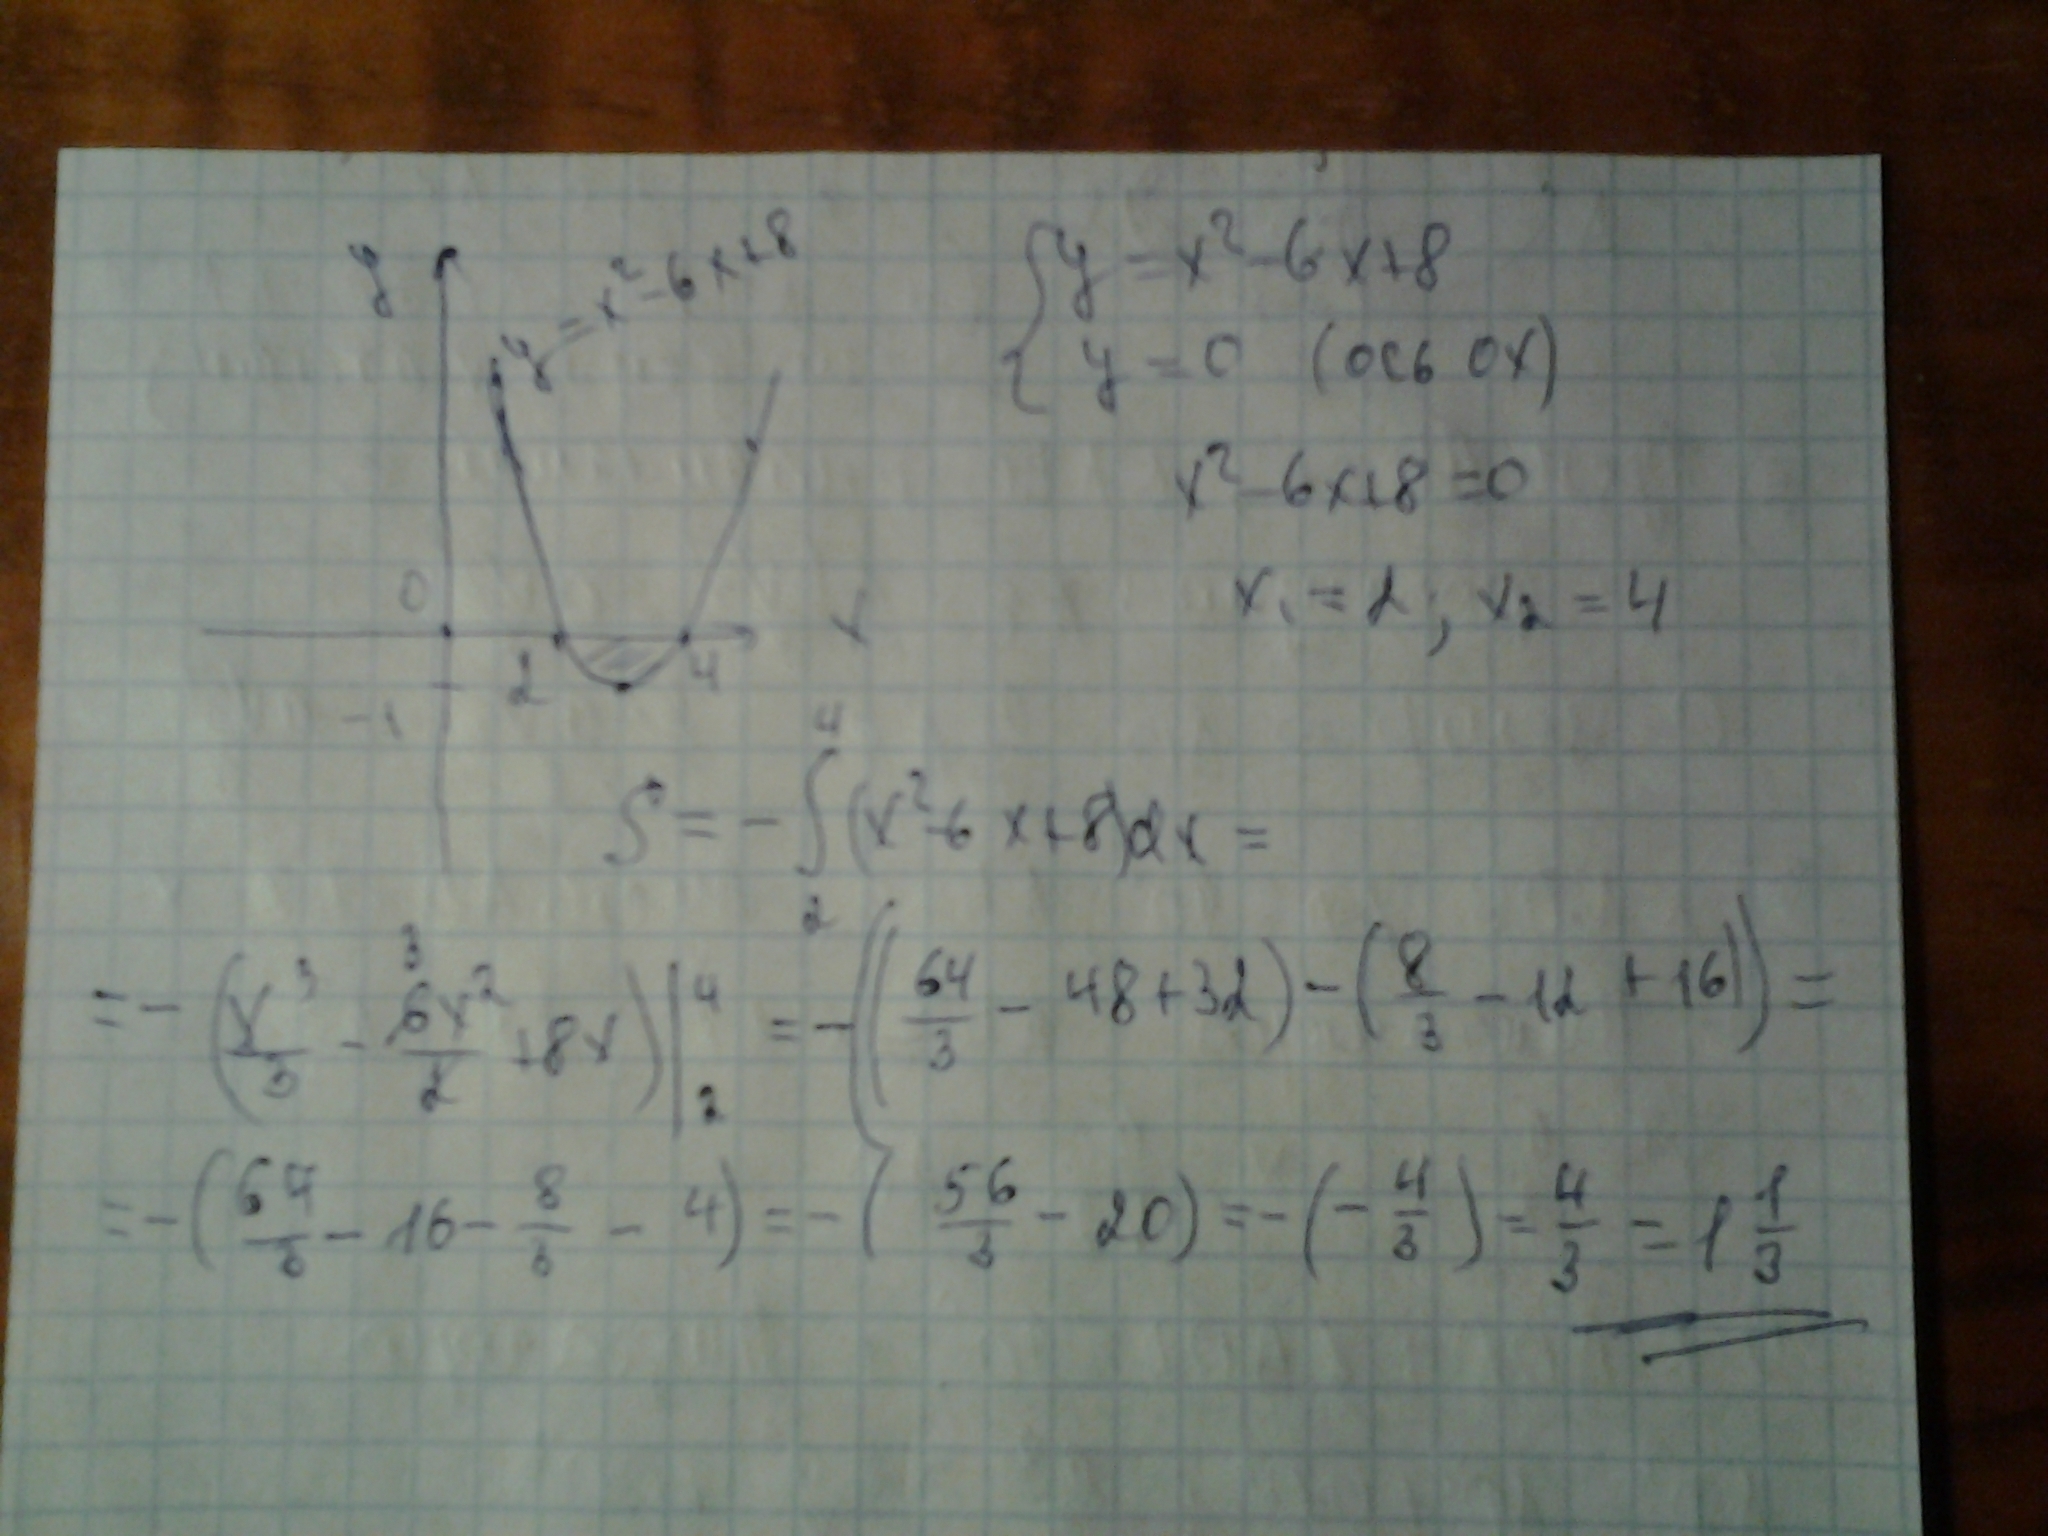 y
y = x² - 6x + 8
0
x
2
4
-1
{ y = x² - 6x + 8
y = 0 (ось OX)
x² - 6x + 8 = 0
x₁ = 2; x₂ = 4
S = - ∫₂⁴ (x² - 6x + 8) dx =
= - (x³/3 - ³6x²/2 + 8x) |₂⁴ = - ((64/3 - 48 + 32) - (8/3 - 12 + 16)) =
= - (64/3 - 16 - 8/3 - 4) = - (56/3 - 20) = - (- 4/3) = 4/3 = 1 1/3